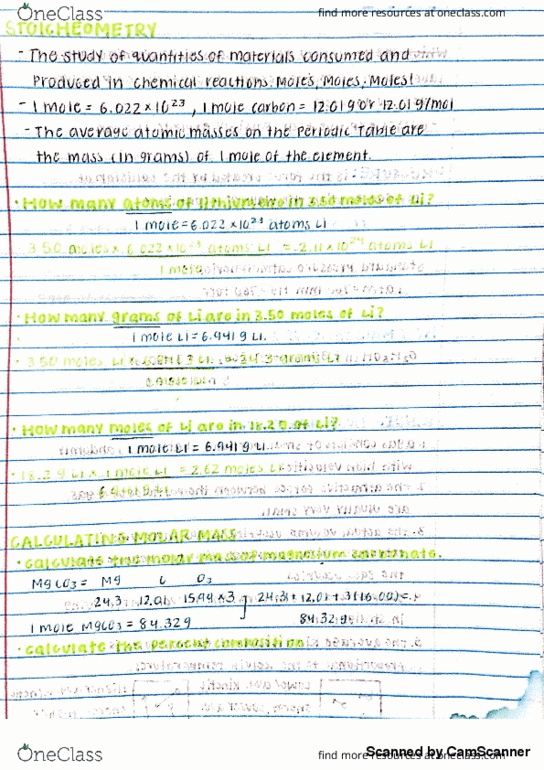 OneClass
find more resources at oneclass.com
STOICHEOMETRY
- The study of quantities of materials consumed and
Produced in chemical reactions. Moles, Moles, Moles!
- 1 mole = 6.022 x 10²³, 1 mole carbon = 12.01 g or 12.01 g/mol
- The average atomic masses on the Periodic Table are
the mass (in grams) of 1 mole of the element.
• How many atoms of lithium are in 3.50 moles of Li?
1 mole = 6.022 x 10²³ atoms Li
3.50 moles x 6.022 x 10²³ atoms Li = 2.11 x 10²⁴ atoms Li
1 mole
• How many grams of Li are in 3.50 moles of Li?
1 mole Li = 6.941 g Li.
• 3.50 moles Li x 6.941 g Li = 24.3 grams Li
• How many moles of Li are in 18.2 g of Li?
1 mole Li = 6.941 g Li
• 18.2 g Li x 1 mole Li = 2.62 moles Li
6.941 g Li
CALCULATING MOLAR MASS
• calculate the molar mass of magnesium carbonate.
MgCO₃ = Mg C O₃
24.3 12.01 15.99 x 3 24.31 + 12.01 + 3(16.00) =
1 mole MgCO₃ = 84.32g 84.32g
• calculate the percent composition
OneClass
find more resources at oneclass.com
Scanned by CamScanner